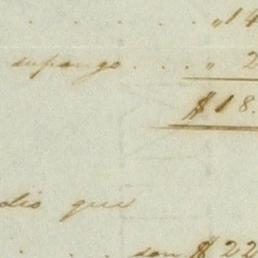 . . . . . " 14
supongo . . . " 2
$18.
dio que
. . . son $22